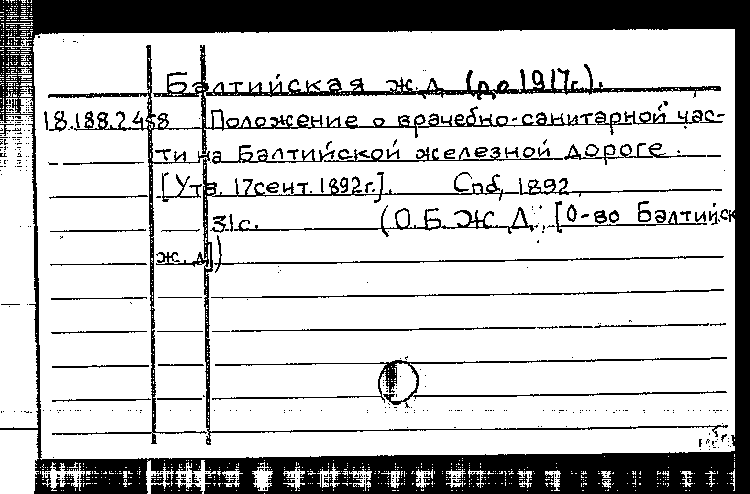 Балтийская ж.д. (до 1917г.).
18.188.2.458 Положение о врачебно-санитарной час-
ти на Балтийской железной дороге.
[Утв. 17 сент. 1892г.]. Спб, 1892.
31с. (О.Б.Ж.Д. [О-во Балтийск
ж.д])